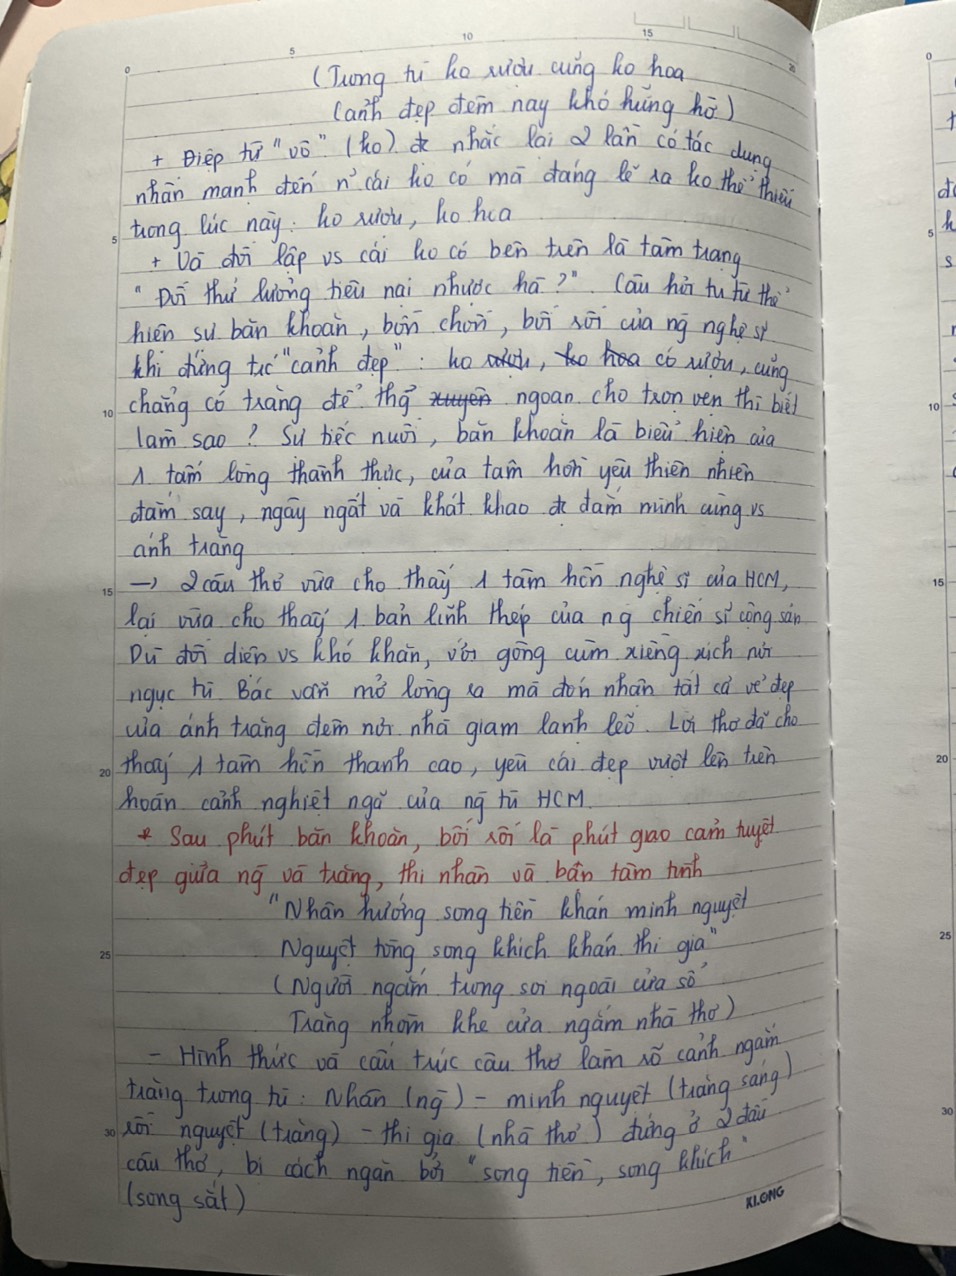 (Trong tù ko rượu cũng ko hoa
Cảnh đẹp đêm nay khó hững hờ)
+ Điệp từ "vô" (ko) đc nhắc lại 2 lần có tác dụng
nhấn mạnh đến n~ cái ko có mà đáng lẽ ra ko thể thiếu
trong lúc này: ko rượu, ko hoa
+ Và đối lập vs cái ko có bên trên là tâm trạng
"Đối thử lương tiêu nại nhược hà?". Câu hỏi tu từ thể
hiện sự băn khoăn, bồn chồn, bối rối của ng nghệ sĩ
khi đứng trc "cảnh đẹp": ko rượu, ko hoa có rượu, cũng
chẳng có trăng để thg~ xuyên ngoạn cho trọn vẹn thì biết
làm sao? Sự tiếc nuối, băn khoăn là biểu hiện của
1 tấm lòng thành thực, của tâm hồn yêu thiên nhiên
đắm say, ngây ngất và khát khao đc đắm mình cùng vs
ánh trăng
→ 2 câu thơ vừa cho thấy 1 tâm hồn nghệ sĩ của HCM,
lại vừa cho thấy 1 bản lĩnh thép của ng chiến sĩ cộng sản
Dù đối diện vs khó khăn, với gông cùm xiềng xích nơi
ngục tù Bác vẫn mở lòng ra mà đón nhận tất cả vẻ đẹp
của ánh trăng đêm nơi nhà giam lạnh lẽo. Lời thơ đã cho
thấy 1 tâm hồn thanh cao, yêu cái đẹp vượt lên trên
hoàn cảnh nghiệt ngã của ng tù HCM.
* Sau phút băn khoăn, bối rối là phút giao cảm tuyệt
đẹp giữa ng và trăng, thi nhân và bạn tâm tình
"Nhân hướng song tiền khán minh nguyệt
Nguyệt tòng song khích khán thi gia"
(Người ngắm trăng soi ngoài cửa sổ
Trăng nhòm khe cửa ngắm nhà thơ)
- Hình thức và cấu trúc câu thơ làm rõ cảnh ngắm
trăng trong tù: nhân (ng) - minh nguyệt (trăng sáng)
rồi nguyệt (trăng) - thi gia (nhà thơ) đứng ở 2 đầu
câu thơ, bị cách ngăn bởi "song tiền, song khích"
(song sắt)
KLONG